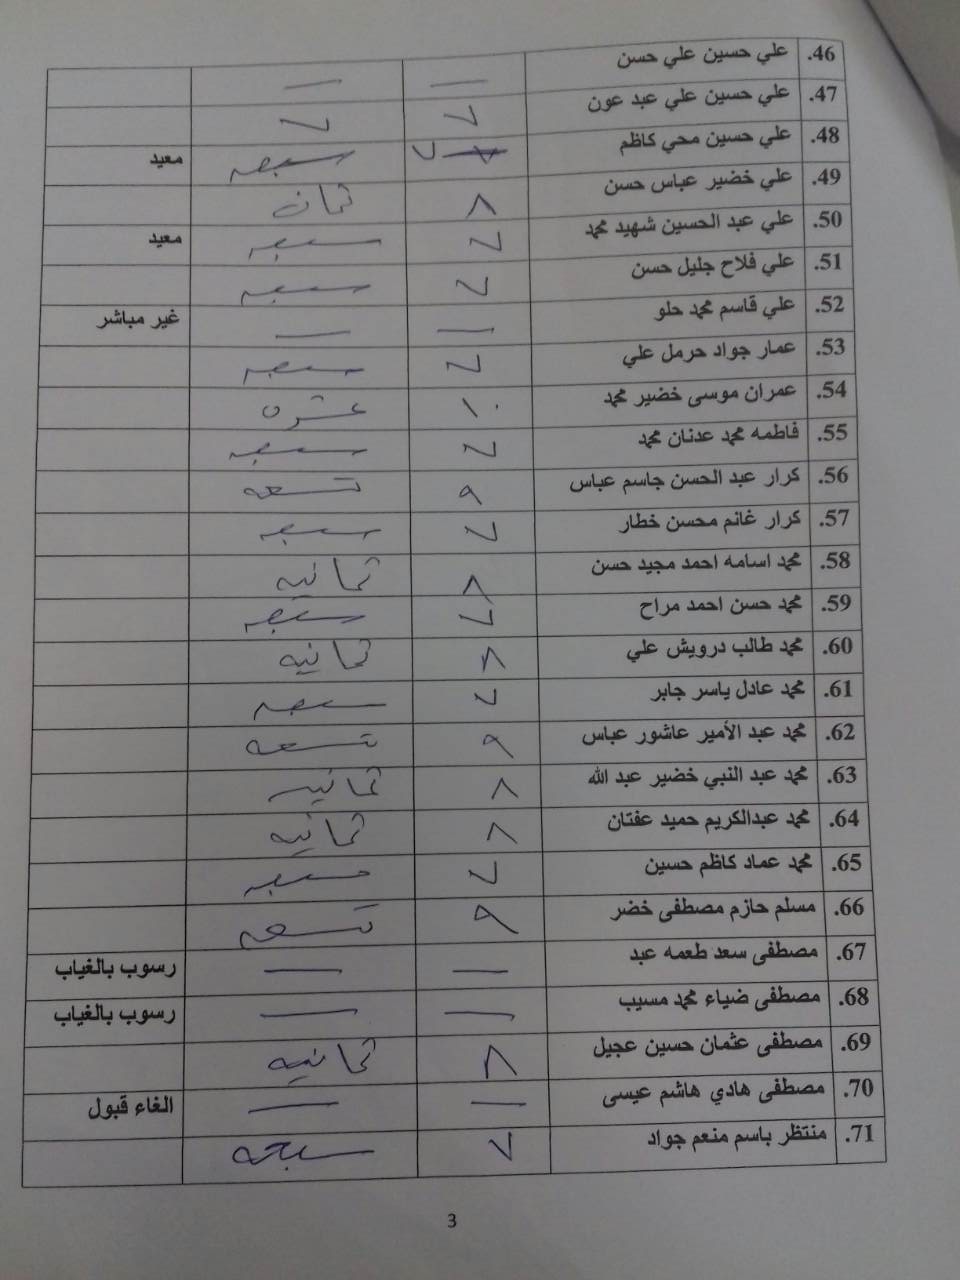 46. علي حسين علي حسن — —
47. علي حسين علي عبد عون ٧ ٧
48. علي حسين محي كاظم ٧ سبعه معيد
49. علي خضير عباس حسن ٨ ثمان
50. علي عبد الحسين شهيد محمد ٧ سبعه معيد
51. علي فلاح جليل حسن ٧ سبعه
52. علي قاسم محمد حلو — — غير مباشر
53. عمار جواد حرمل علي ٧ سبعه
54. عمران موسى خضير محمد ١٠ عشره
55. فاطمه محمد عدنان محمد ٧ سبعه
56. كرار عبد الحسن جاسم عباس ٩ تسعه
57. كرار غانم محسن خطار ٧ سبعه
58. محمد اسامه احمد مجيد حسن ٨ ثمانيه
59. محمد حسن احمد مراح ٧ سبعه
60. محمد طالب درويش علي ٨ ثمانيه
61. محمد عادل ياسر جابر ٧ سبعه
62. محمد عبد الأمير عاشور عباس ٩ تسعه
63. محمد عبد النبي خضير عبد الله ٨ ثمانيه
64. محمد عبدالكريم حميد عفتان ٨ ثمانيه
65. محمد عماد كاظم حسين ٧ سبعه
66. مسلم حازم مصطفى خضر ٩ تسعه
67. مصطفى سعد طعمه عبد — — رسوب بالغياب
68. مصطفى ضياء محمد مسيب — — رسوب بالغياب
69. مصطفى عثمان حسين عجيل ٨ ثمانيه
70. مصطفى هادي هاشم عيسى — — الغاء قبول
71. منتظر باسم منعم جواد ٧ سبعه
3